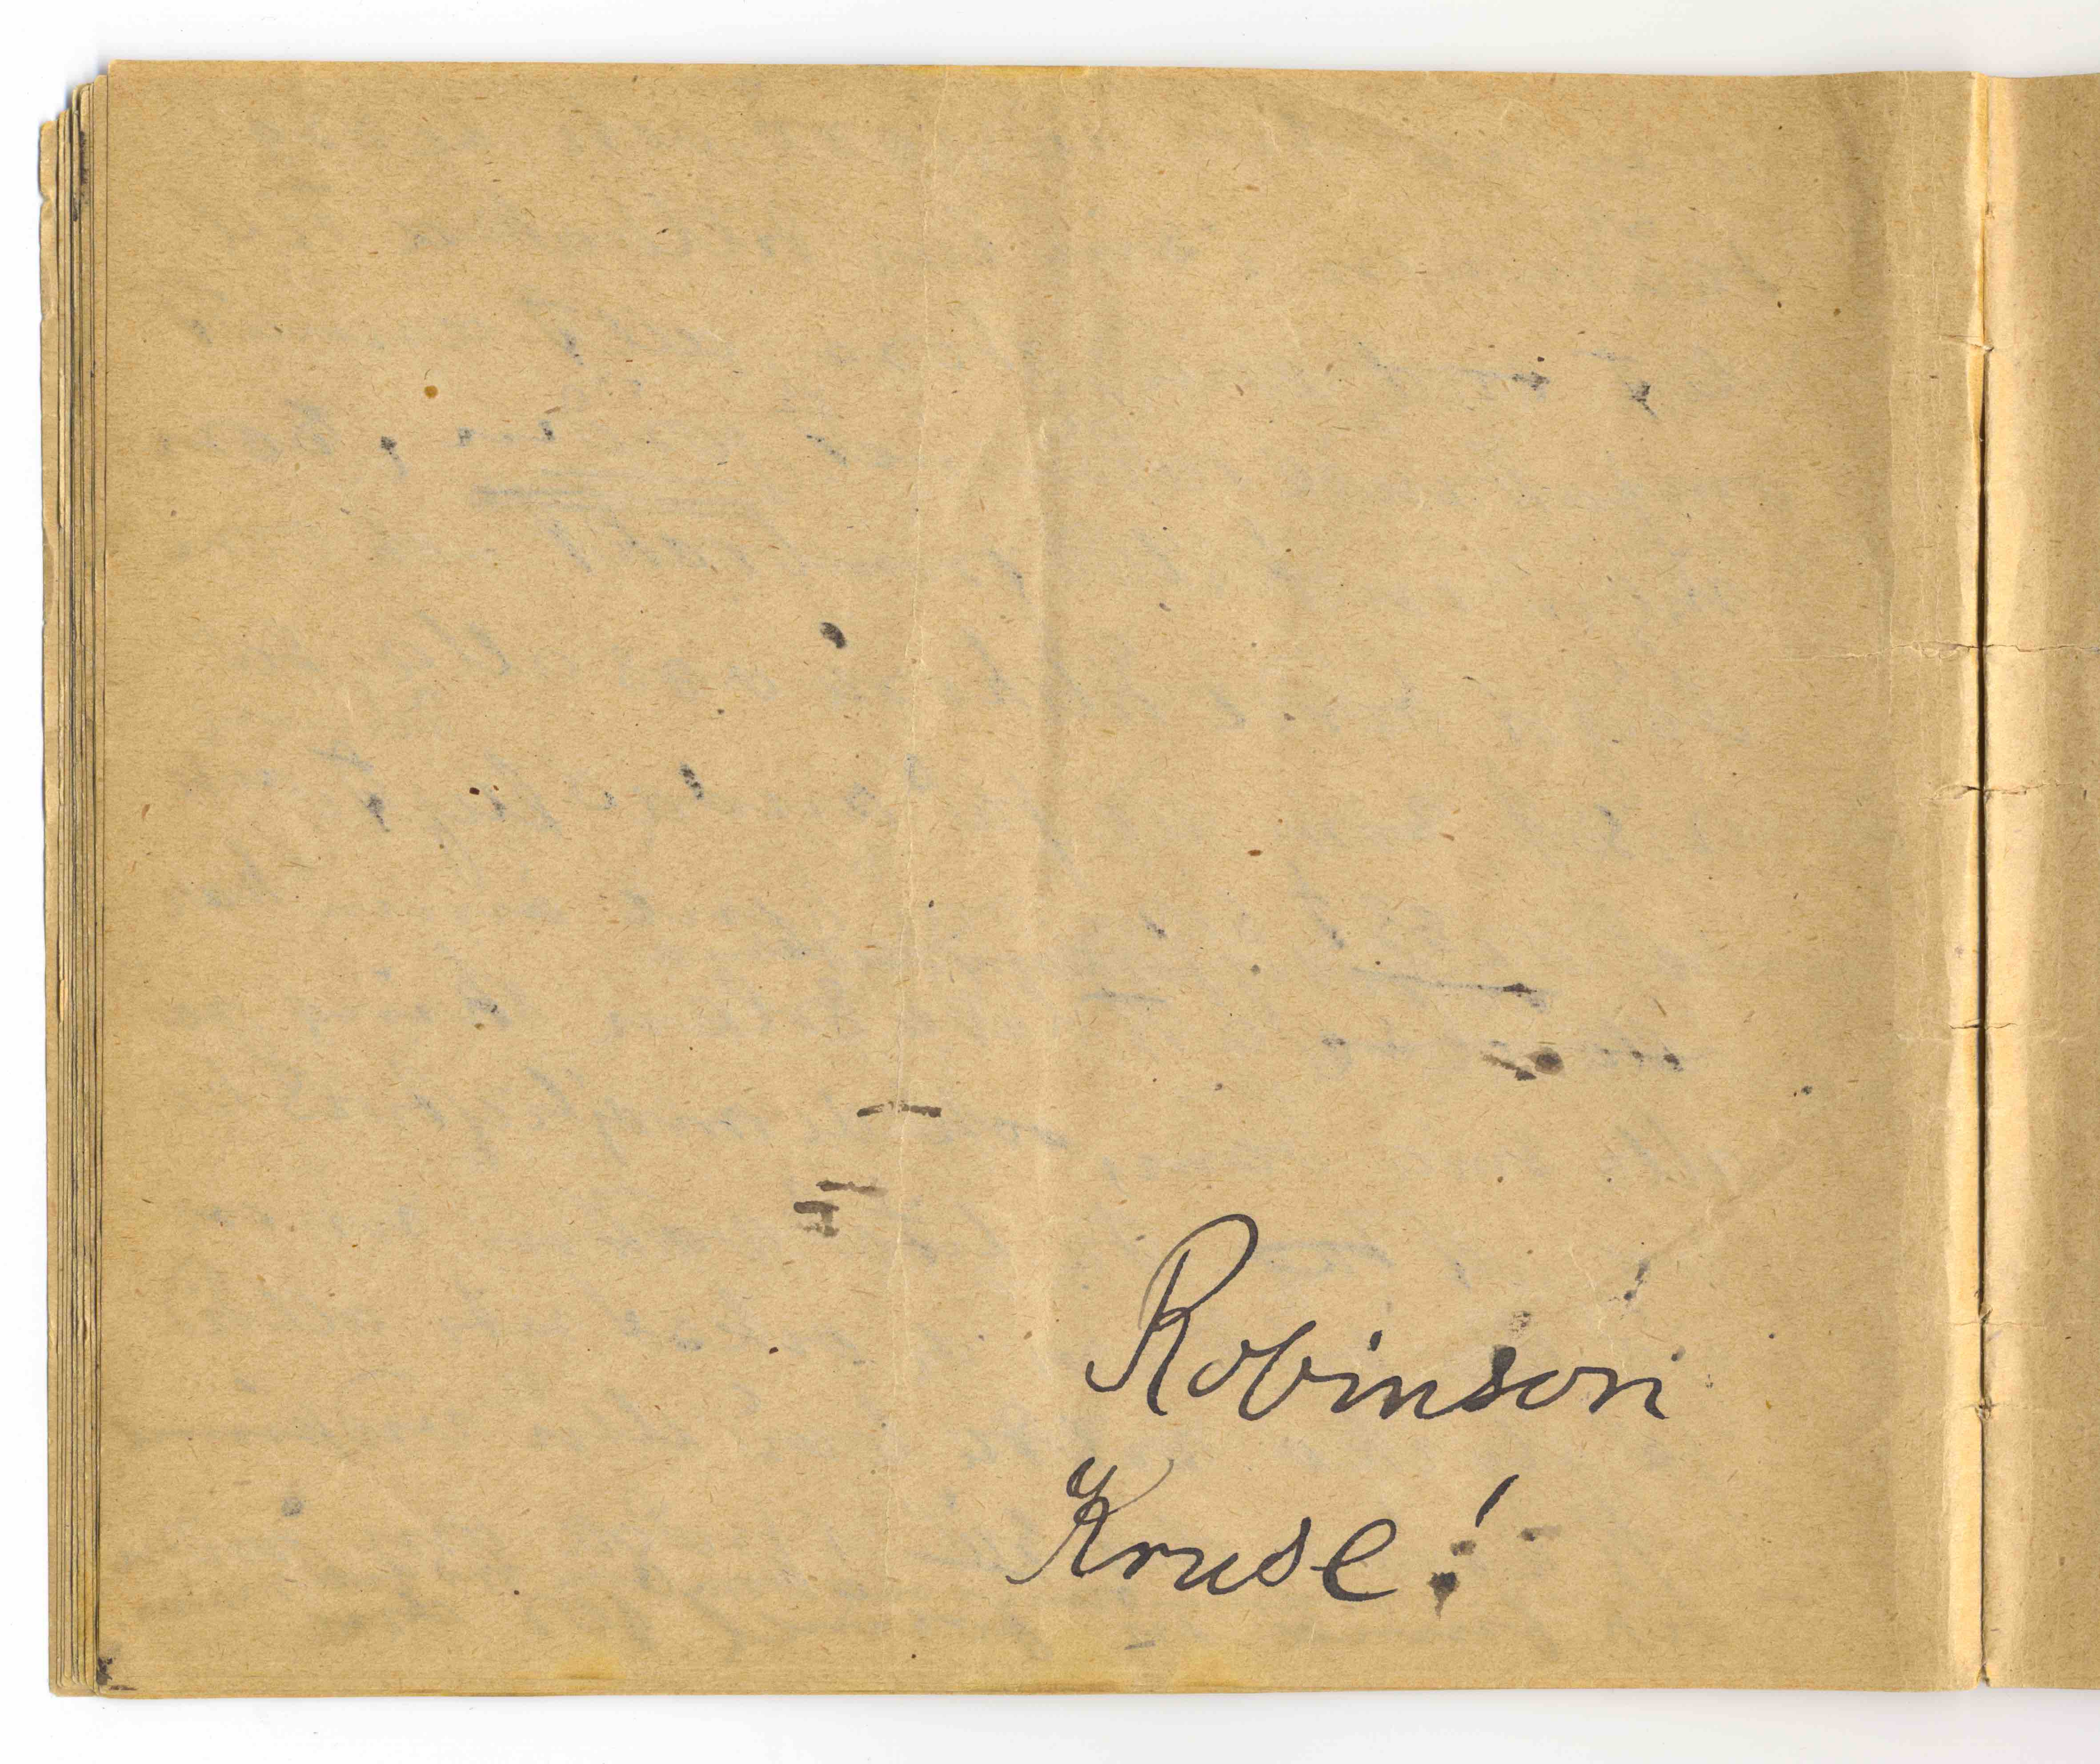 Robinson
Kruse!